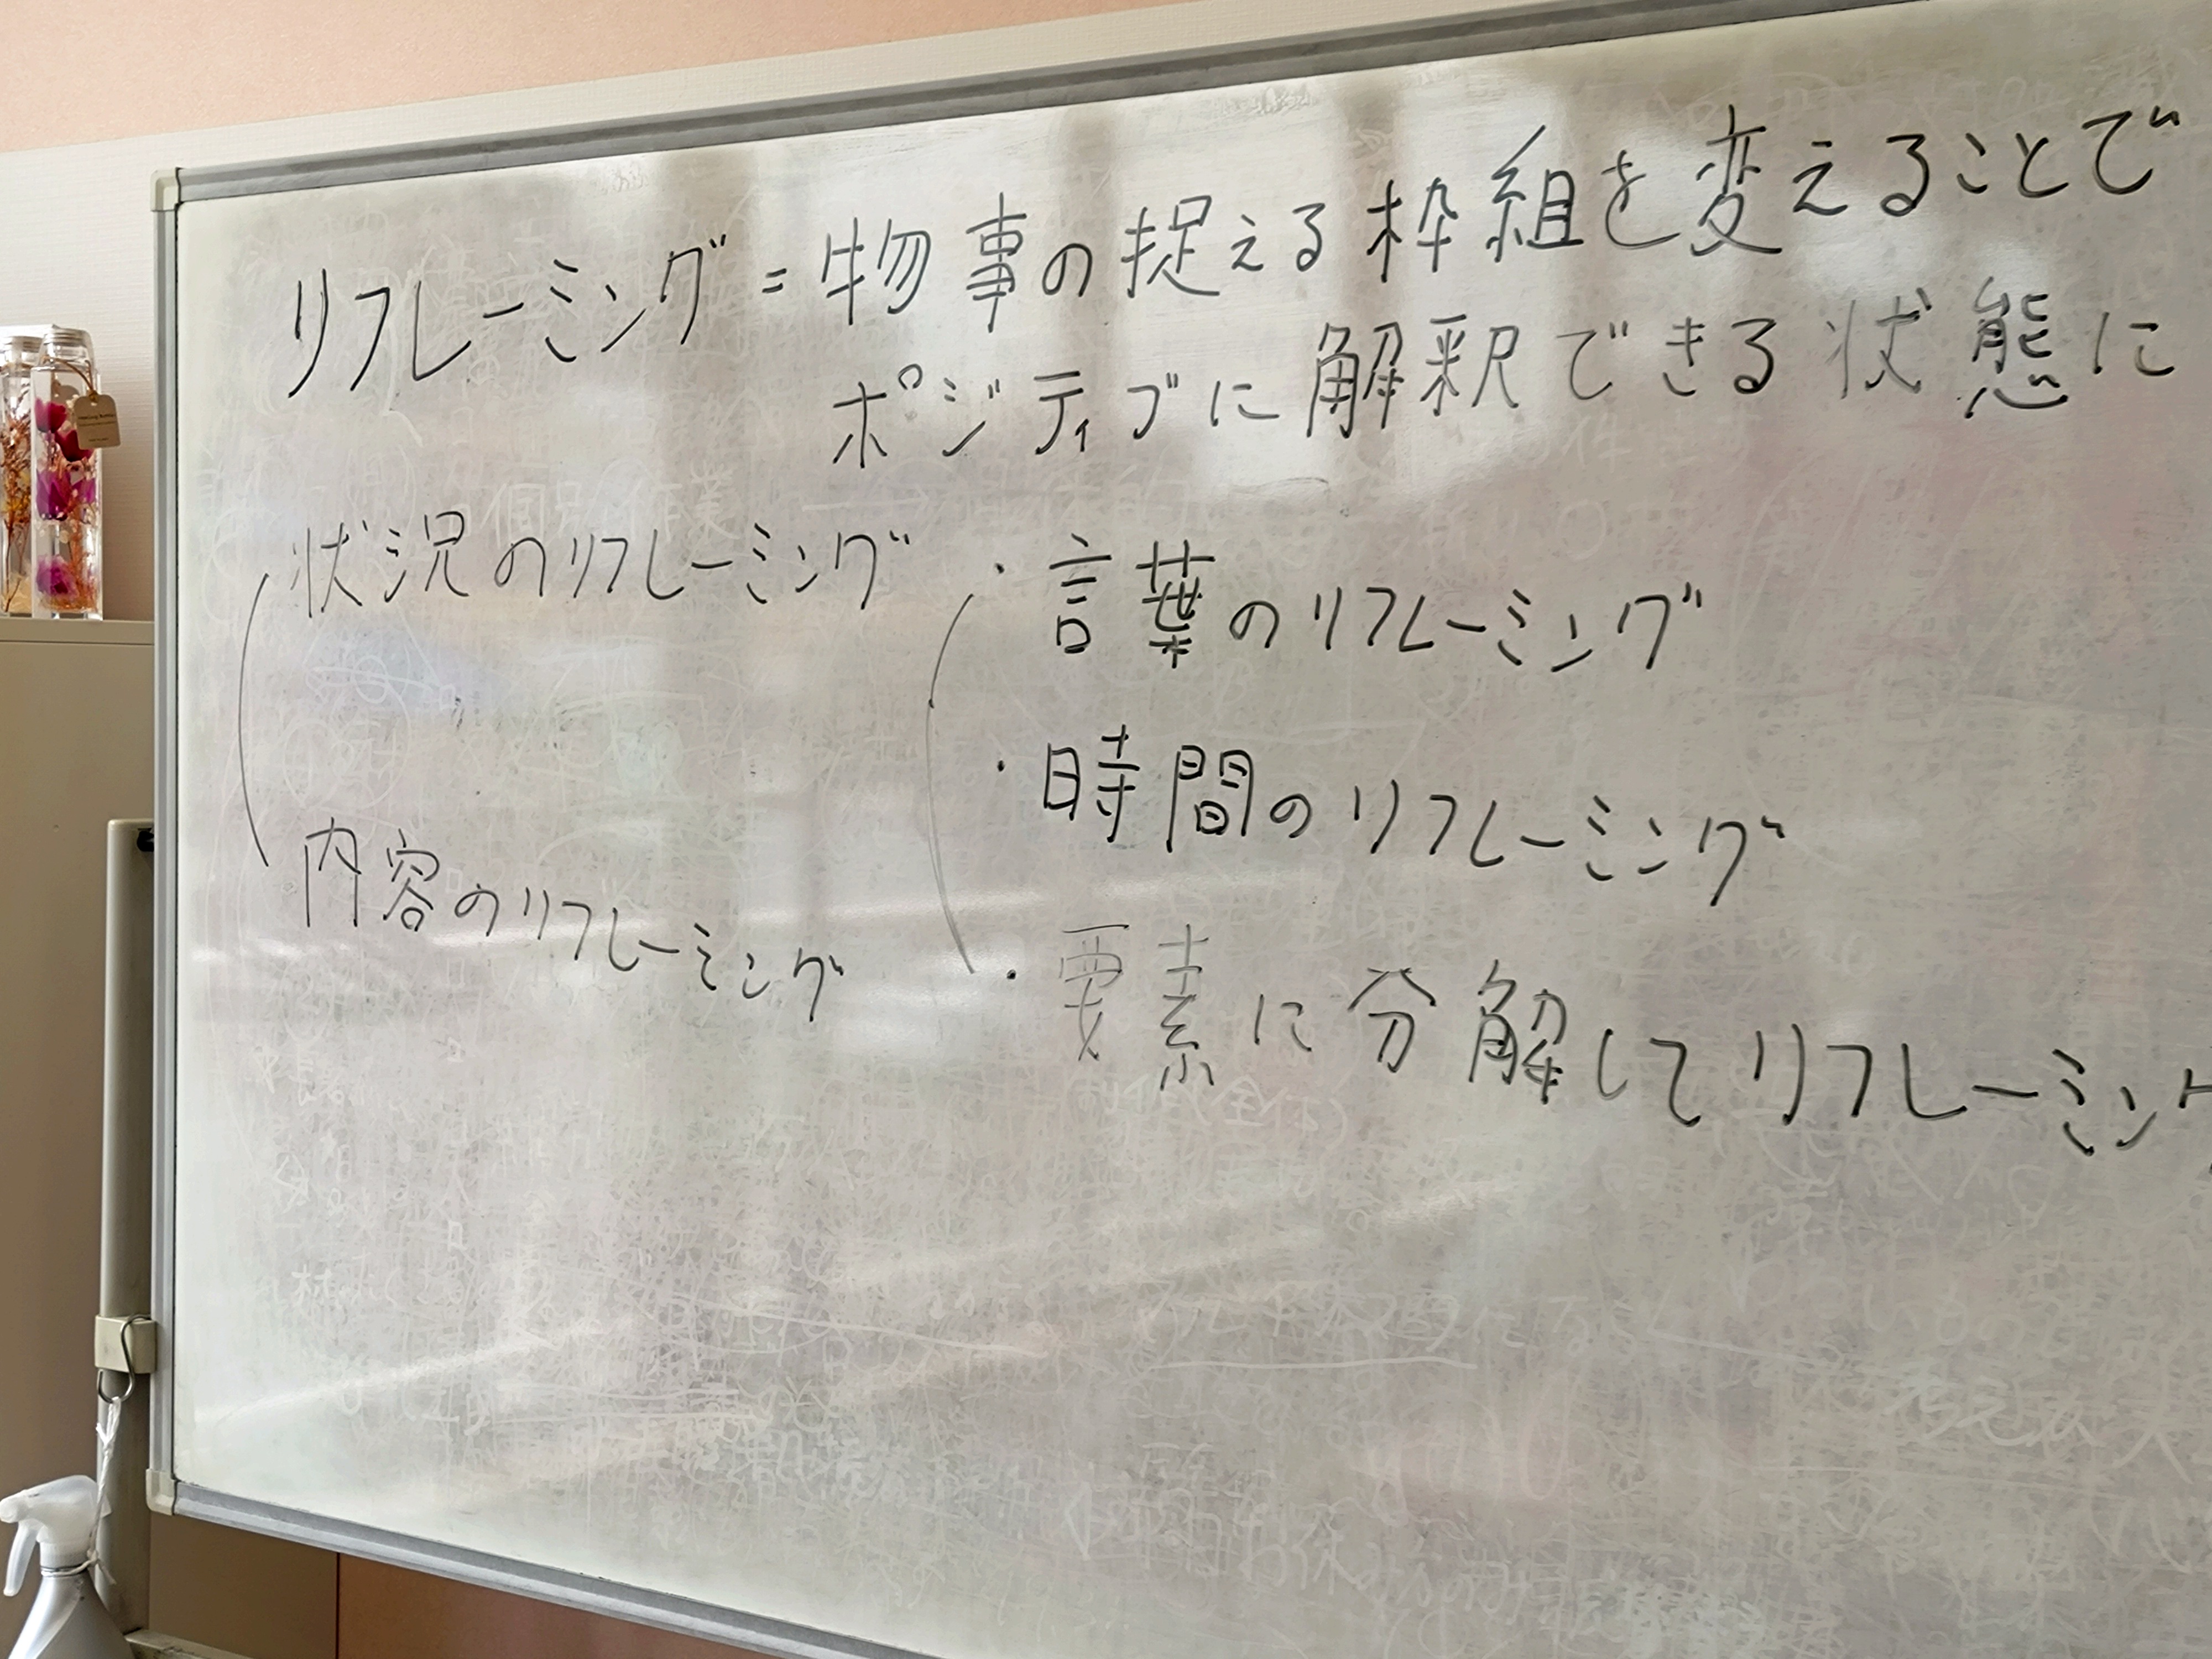 リフレーミング=物事の捉える枠組を変えることで
ポジティブに解釈できる状態に
状況のリフレーミング
内容のリフレーミング
・言葉のリフレーミング
・時間のリフレーミング
・要素に分解してリフレーミング